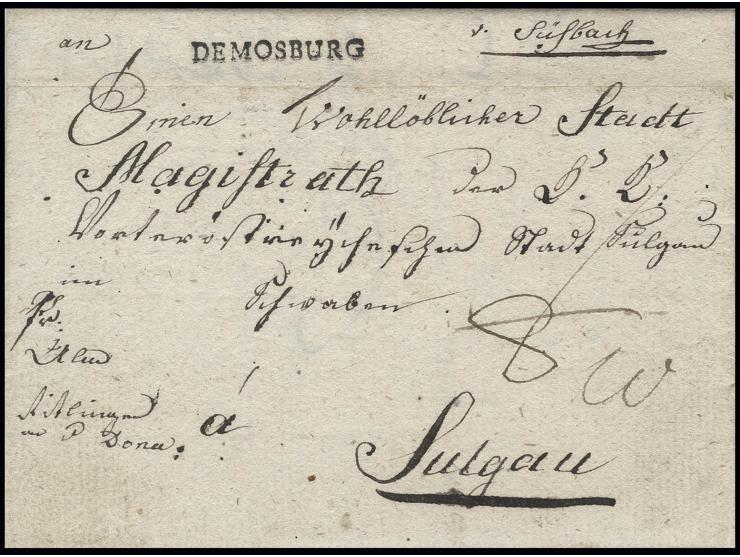 an DEMOSBURG v. Süsbach
Einen Wohllöblicher Stadt
Magistrath der K. K.
Vorteröstreycheschen Stadt Sulgau
im Schwaben
Pr.
Ulm 8 W
Ritlingen
an D Dona. á
Sulgau